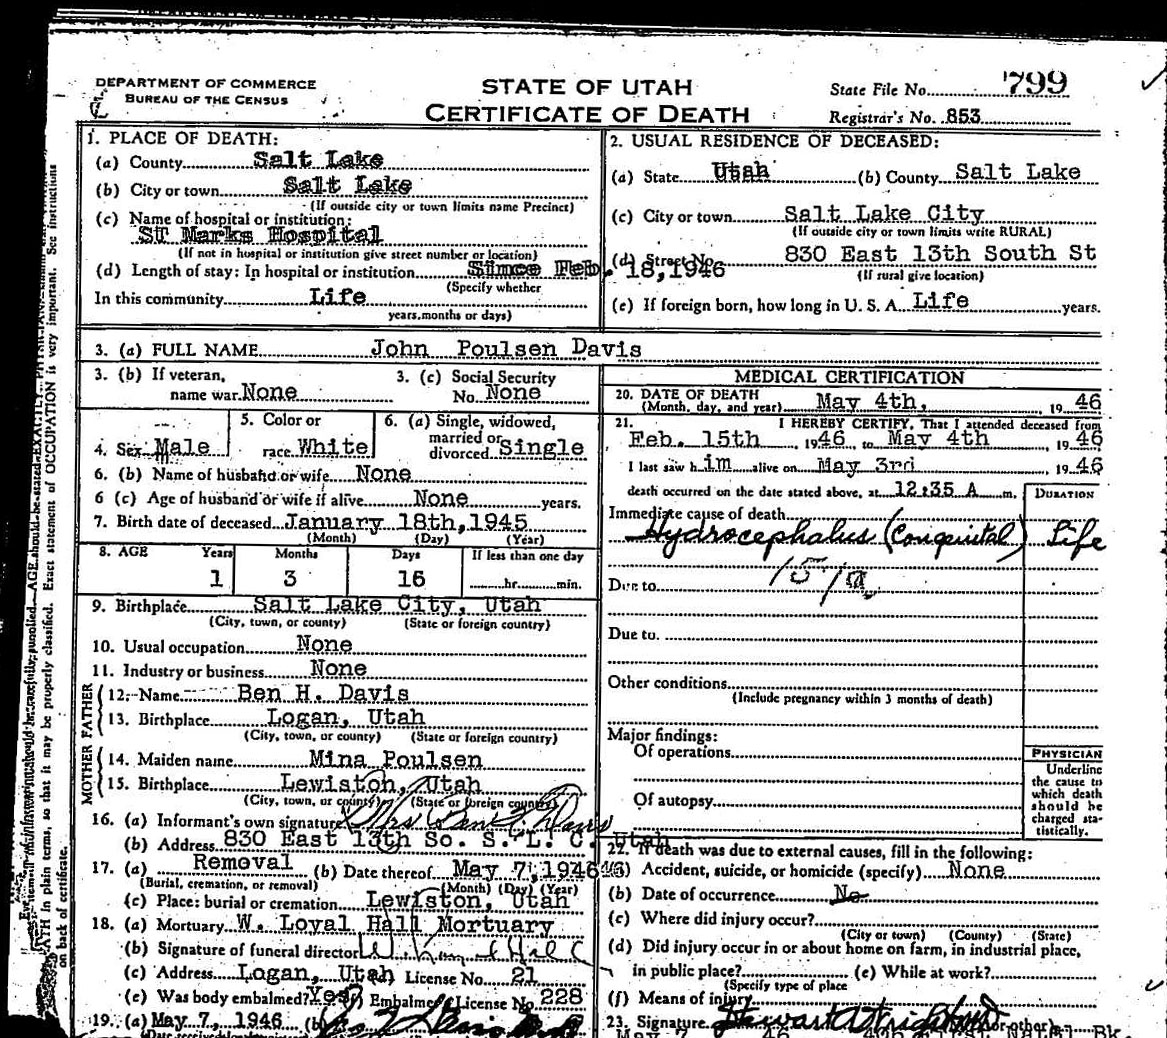 DEPARTMENT OF COMMERCE
BUREAU OF THE CENSUS
STATE OF UTAH
CERTIFICATE OF DEATH
State File No. 799
Registrar's No. 853
1. PLACE OF DEATH:
(a) County Salt Lake
(b) City or town Salt Lake
(If outside city or town limits name Precinct)
(c) Name of hospital or institution:
ST Marks Hospital
(If not in hospital or institution give street number or location)
(d) Length of stay: In hospital or institution Since Feb. 18,1946
(Specify whether
In this community Life
years, months or days)
2. USUAL RESIDENCE OF DECEASED:
(a) State Utah (b) County Salt Lake
(c) City or town Salt Lake City
(If outside city or town limits write RURAL)
(d) Street No. 830 East 13th South St
(If rural give location)
(e) If foreign born, how long in U. S. A. Life years.
3. (a) FULL NAME John Poulsen Davis
3. (b) If veteran,
name war None
3. (c) Social Security
No. None
4. Sex Male
5. Color or
race White
6. (a) Single, widowed,
married or
divorced Single
6. (b) Name of husband or wife None
6 (c) Age of husband or wife if alive None years.
7. Birth date of deceased January 18th, 1945
(Month) (Day) (Year)
8. AGE Years Months Days If less than one day
1 3 16 hr. min.
9. Birthplace Salt Lake City, Utah
(City, town, or county) (State or foreign country)
10. Usual occupation None
11. Industry or business None
FATHER
12. Name Ben H. Davis
13. Birthplace Logan, Utah
(City, town, or county) (State or foreign country)
MOTHER
14. Maiden name Mina Poulsen
15. Birthplace Lewiston, Utah
(City, town, or county) (State or foreign country)
16. (a) Informant's own signature Mrs Ben H. Davis
(b) Address 830 East 13th So. S. L. C. Utah
17. (a) Removal (b) Date thereof May 7, 1946
(Burial, cremation, or removal) (Month) (Day) (Year)
(c) Place: burial or cremation Lewiston, Utah
18. (a) Mortuary W. Loyal Hall Mortuary
(b) Signature of funeral director
(c) Address Logan, Utah License No. 21
(e) Was body embalmed? Yes Embalmer License No. 228
19. (a) May 7, 1946 (b)
MEDICAL CERTIFICATION
20. DATE OF DEATH
(Month, day, and year) May 4th, 19 46
21. I HEREBY CERTIFY, That I attended deceased from
Feb. 15th 1946 to May 4th 19 46
I last saw h im alive on May 3rd 19 46
death occurred on the date stated above, at 12:35 A m.
DURATION
Immediate cause of death
Hydrocephalus (Congenital) Life
157a
Due to
Due to
Other conditions
(Include pregnancy within 3 months of death)
Major findings:
Of operations
Of autopsy
PHYSICIAN
Underline
the cause to
which death
should be
charged sta-
tistically.
22. If death was due to external causes, fill in the following:
(a) Accident, suicide, or homicide (specify) None
(b) Date of occurrence No
(c) Where did injury occur?
(City or town) (County) (State)
(d) Did injury occur in or about home on farm, in industrial place,
in public place? (e) While at work?
(Specify type of place
(f) Means of injury
23. Signature
AGE should be stated EXACTLY.
See instructions
Exact statement of OCCUPATION is very important.
in plain terms, so that it may be properly classified.
on back of certificate.